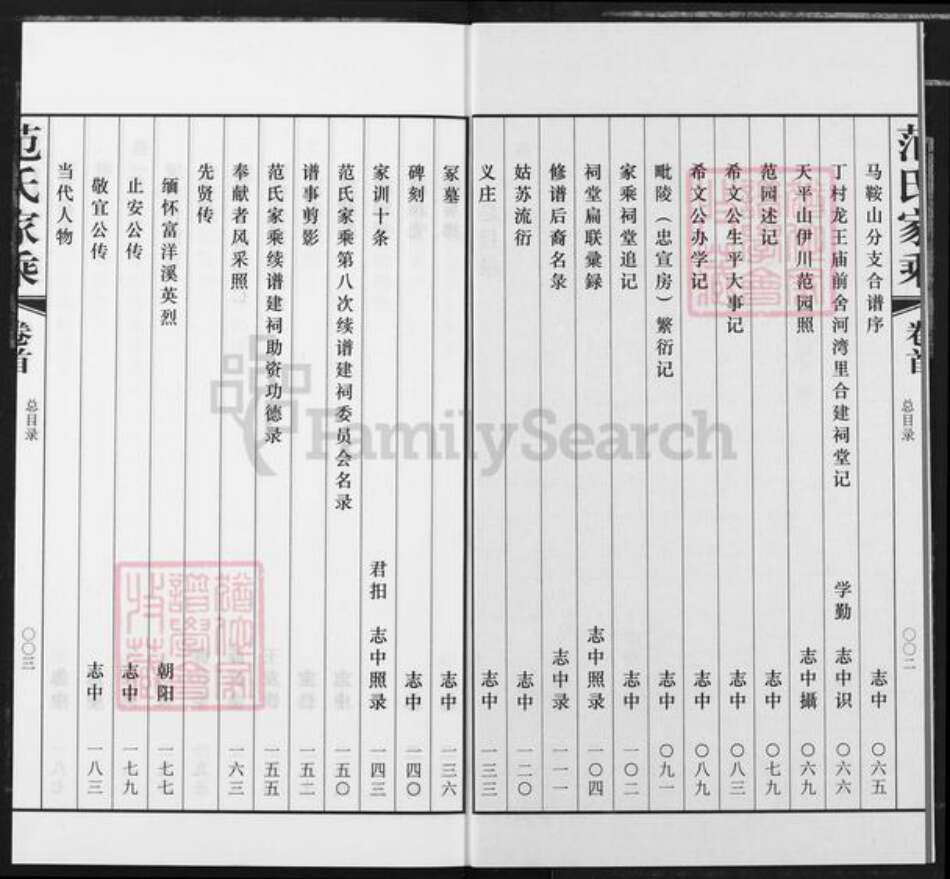 范氏家乘 卷首 总目录 〇〇二
马鞍山分支合谱序 志中 〇六五
丁村龙王庙前舍河湾里合建祠堂记 学勤 志中识 〇六六
天平山伊川范园照 志中攝 〇六九
范园述记 志中 〇七九
希文公生平大事记 志中 〇八三
希文公办学记 志中 〇八九
毗陵（忠宣房）繁衍记 志中 〇九一
家乘祠堂追记 志中 一〇二
祠堂扁联彙録 志中照录 一〇四
修谱后裔名录 志中录 一一一
姑苏流衍 志中 一二〇
义庄 志中 一三三
冢墓 志中 一三六
碑刻 志中 一四〇
家训十条 君抇 志中照录 一四三
范氏家乘第八次续谱建祠委员会名录 一五〇
谱事剪影 一五二
范氏家乘续谱建祠助资功德录 一五五
奉献者风采照 一六三
先贤传
缅怀富洋溪英烈 朝阳 一七七
止安公传 志中 一七九
敬宜公传 志中 一八三
当代人物
范氏家乘 卷首 总目录 〇〇三
FamilySearch